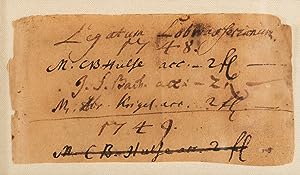 Legatum Lobwasserianum
1748
M. C B Hulse acc. – 2 fl
J. S. Bach acc – 2 –
M. Abr. Krigel. acc. – 2 fl
1749.
M. C B. Hulse acc. 2 fl